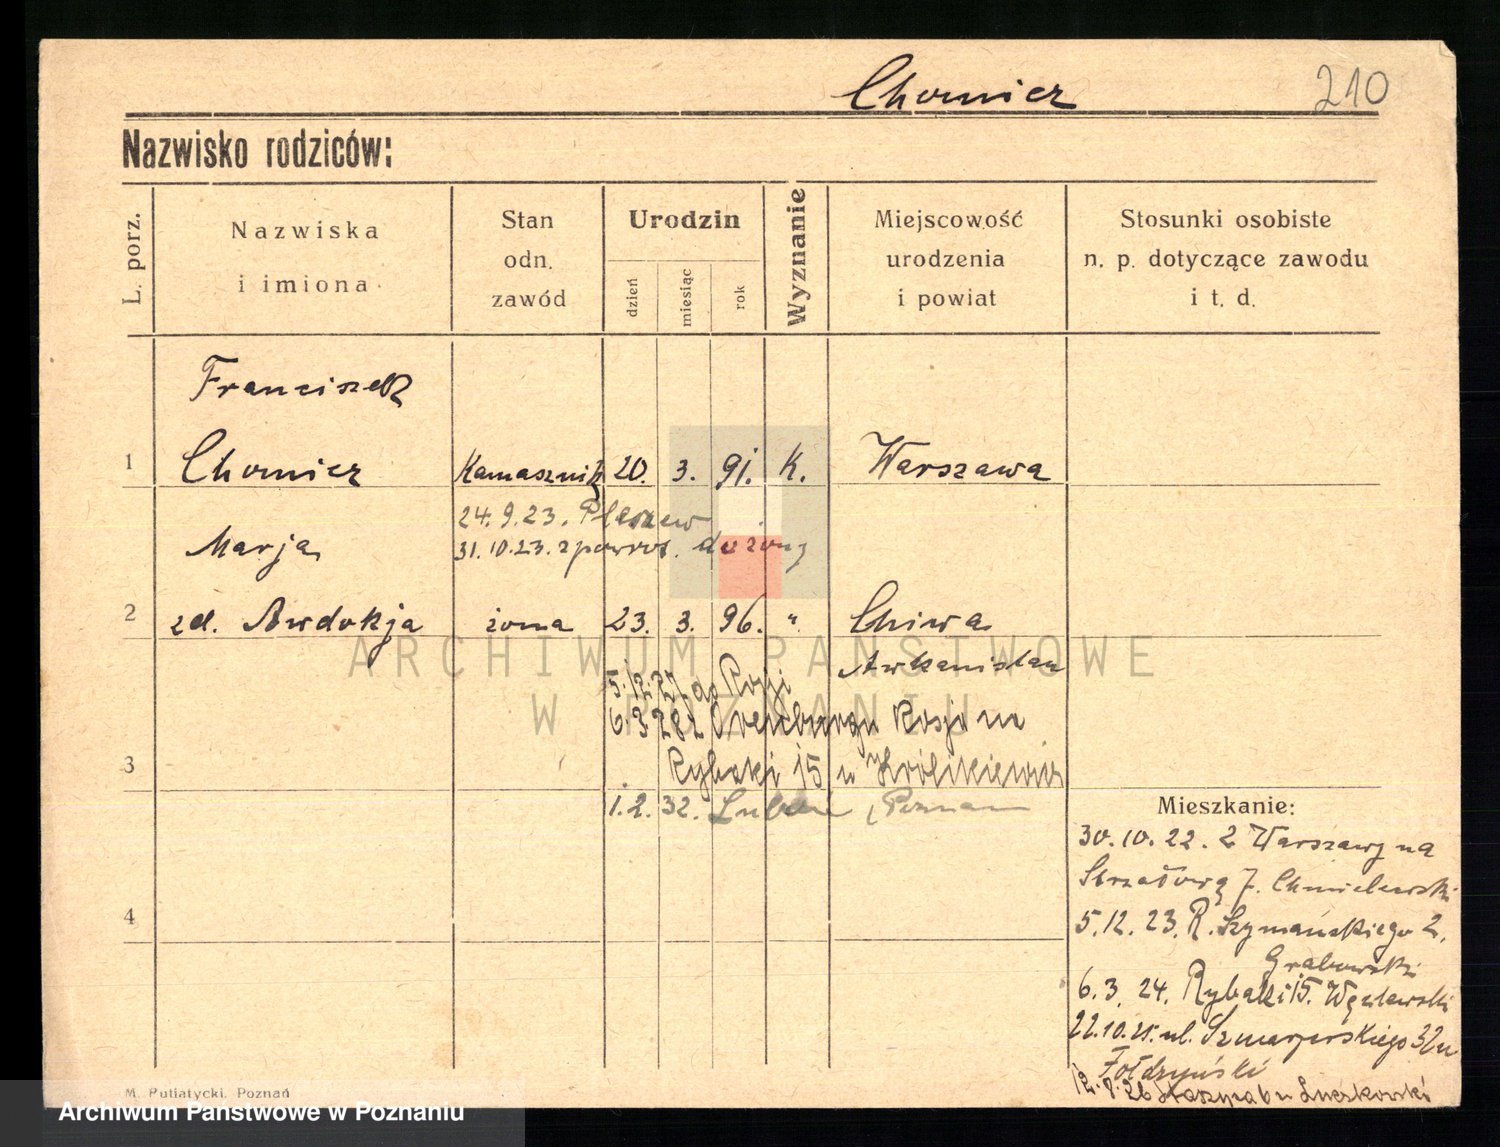 Chomicz 210
Nazwisko rodziców:
L. porz.
Nazwiska
i imiona
Stan
odn.
zawód
Urodzin
dzień
miesiąc
rok
Wyznanie
Miejscowość
urodzenia
i powiat
Stosunki osobiste
n. p. dotyczące zawodu
i t. d.
Franciszek
1 Chomicz Kamasznik 20. 3. 91. K. Warszawa
24.9.23. Pleszew
31.10.23. z powrot. do żony
Marja
2 zd. Awdokja żona 23. 3. 96. " Chiwa
ARCHIWUM PAŃSTWOWE
W POZNANIU
5.12.27 do Rosji
6.3.28 z Orenburgu Rosja na
3 Rybaki 15 u Królikiewicz
1.2.32. Luboń Poznań
Mieszkanie:
30.10.22. z Warszawy na
Strzałową 7. Chmielewski
4
5.12.23. R. Szymańskiego 2.
Grabowski
6.3.24. Rybaki 15.
22.10.25. ul. Szmarzewskiego 32 u
12.8.26
M. Putiatycki, Poznań
Archiwum Państwowe w Poznaniu